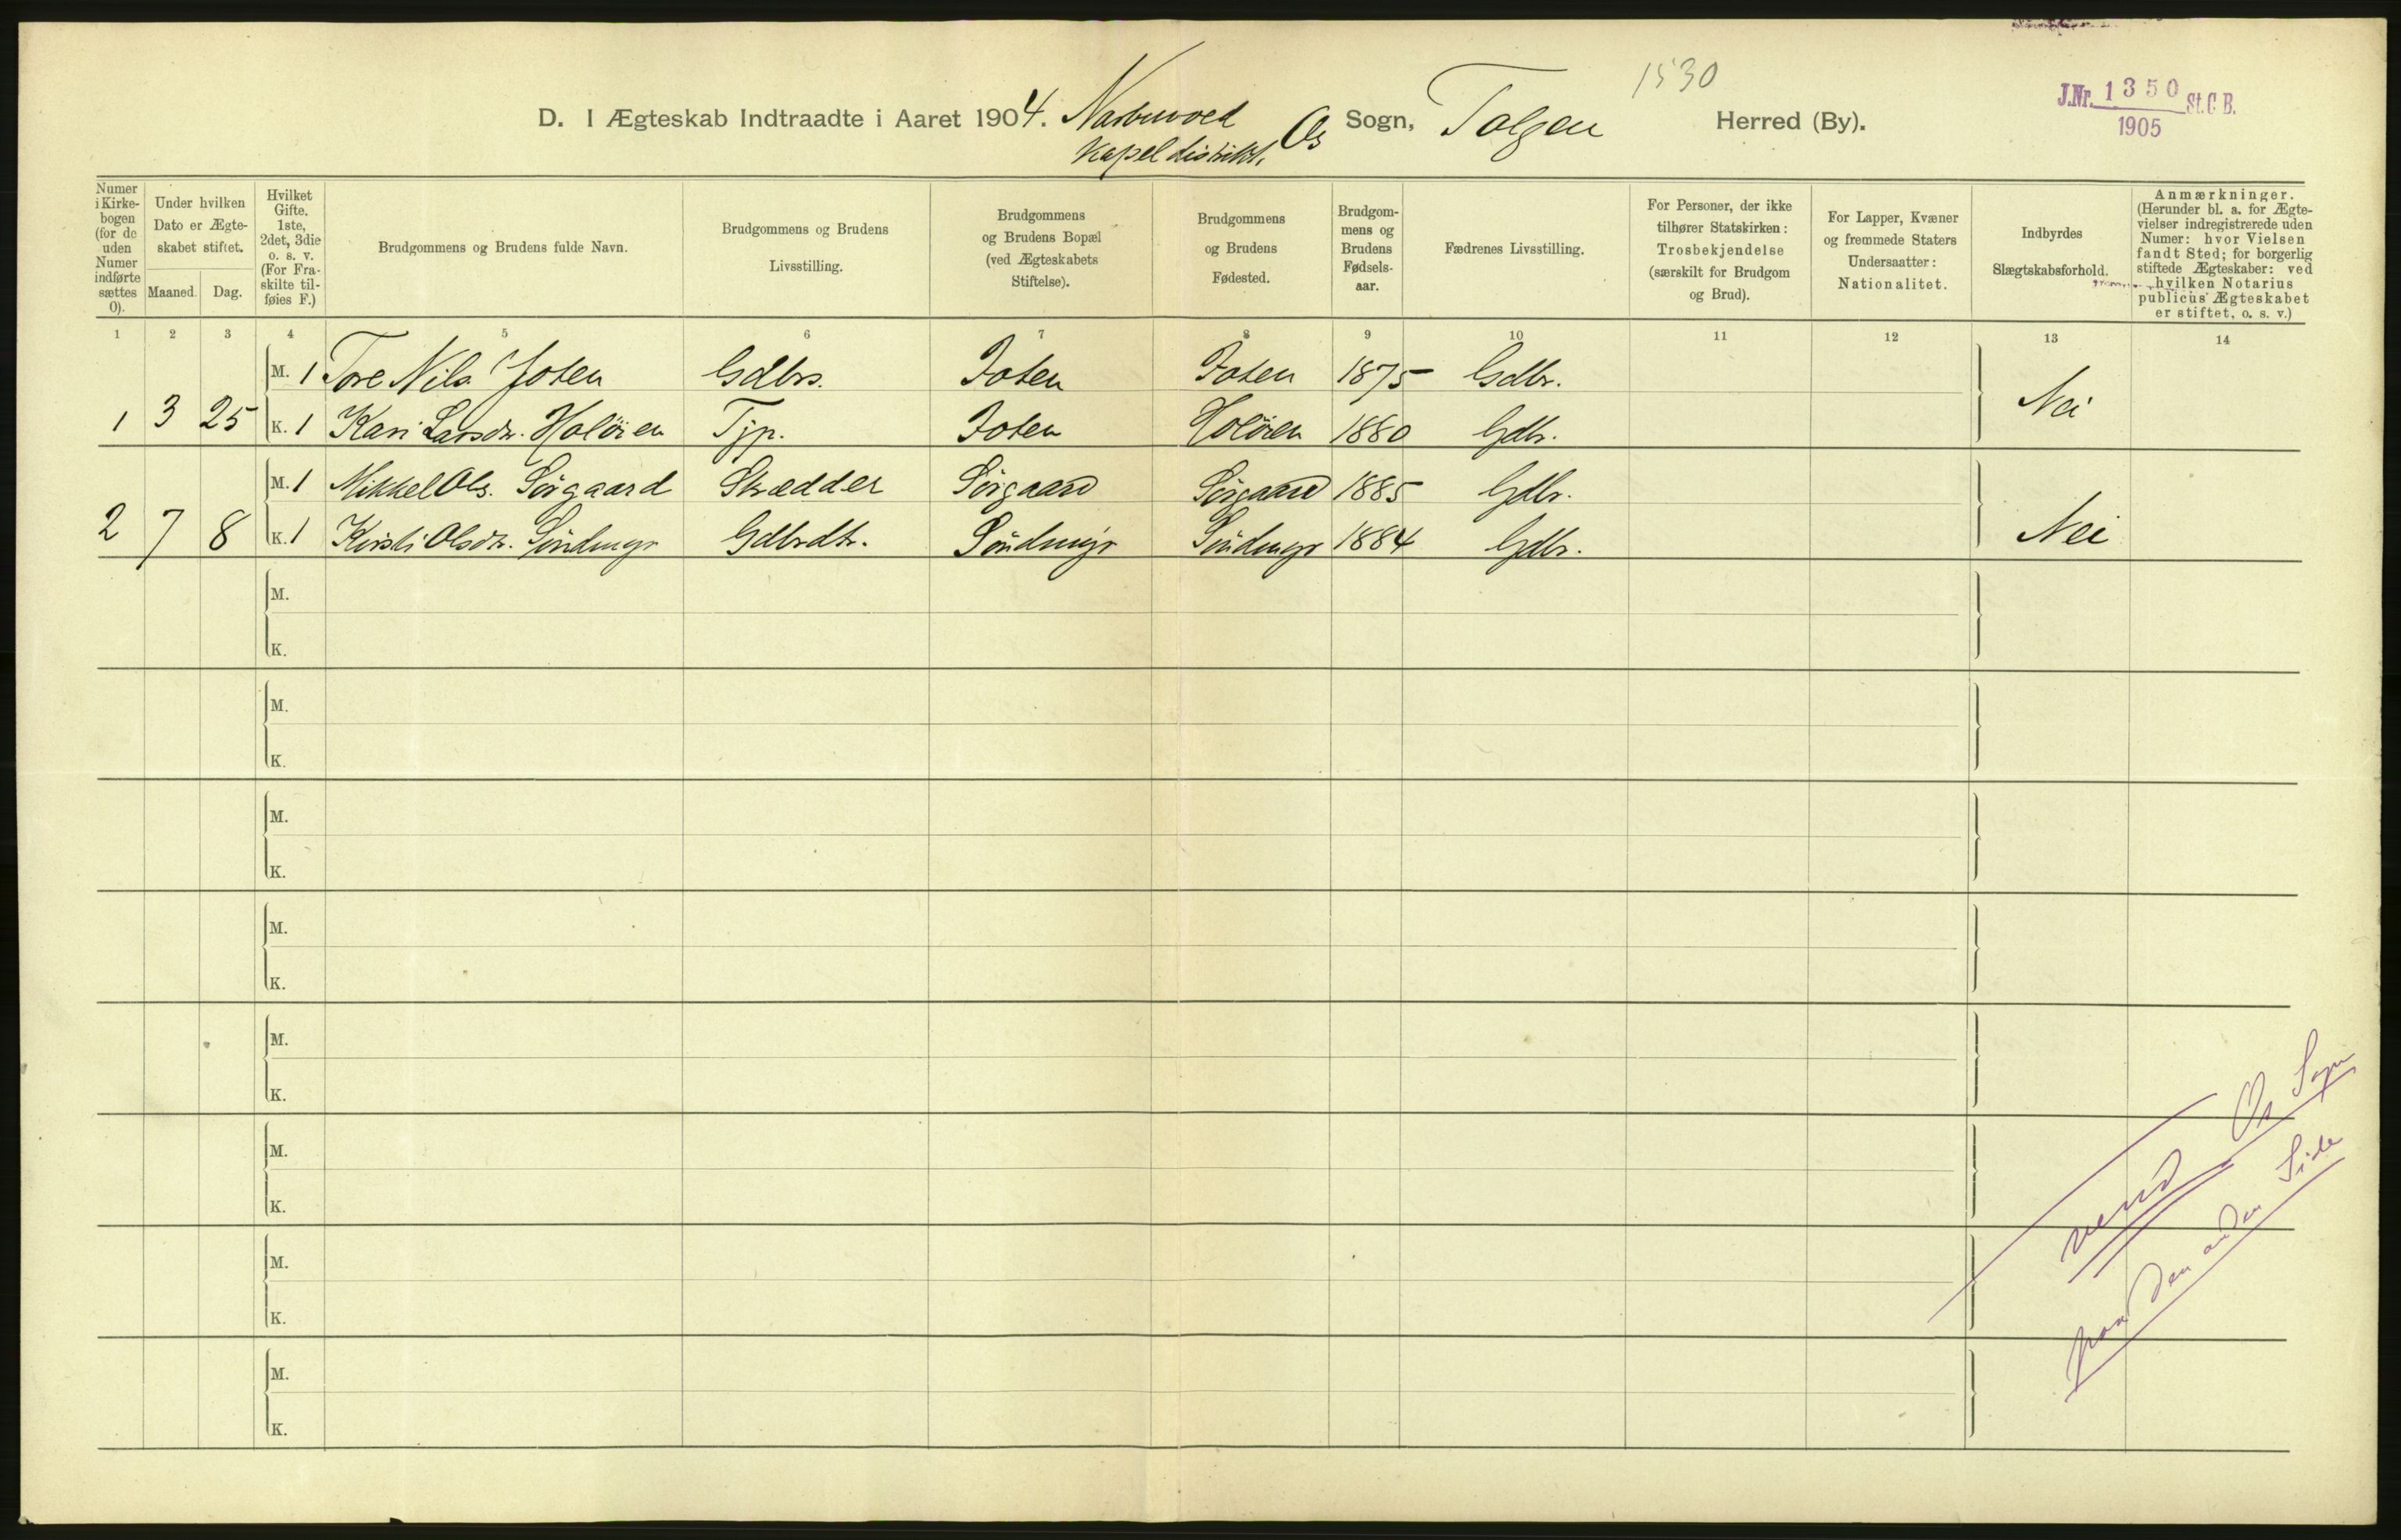 1530
J.Nr. 1350 St.C.B.
1905
D. I Ægteskab Indtraadte i Aaret 1904. Narbuvoed Kapeldistrikt, Os Sogn, Tolgen Herred (By).
Numer i Kirkebogen (for de uden Numer indførte sættes 0).
Under hvilken Dato er Ægteskabet stiftet.
Maaned. Dag.
Hvilket Gifte. 1ste, 2det, 3die o. s. v. (For Fraskilte tilføies F.)
Brudgommens og Brudens fulde Navn.
Brudgommens og Brudens Livsstilling.
Brudgommens og Brudens Bopæl (ved Ægteskabets Stiftelse).
Brudgommens og Brudens Fødested.
Brudgommens og Brudens Fødselsaar.
Fædrenes Livsstilling.
For Personer, der ikke tilhører Statskirken: Trosbekjendelse (særskilt for Brudgom og Brud).
For Lapper, Kvæner og fremmede Staters Undersaatter: Nationalitet.
Indbyrdes Slægtskabsforhold.
Anmærkninger. (Herunder bl. a. for Ægtevielser indregistrerede uden Numer: hvor Vielsen fandt Sted; for borgerlig stiftede Ægteskaber: ved hvilken Notarius publicus Ægteskabet er stiftet, o. s. v.)
1 2 3 4 5 6 7 8 9 10 11 12 13 14
M. 1 Tore Nils. Joten Gdbrs. Joten Joten 1875 Gdbr.
1 3 25 K. 1 Kari Larsdr. Holöien Tjp. Joten Holöien 1880 Gdbr. Nei
M. 1 Mikkel Ols. Sörgaard Skrædder Sörgaard Sörgaard 1885 Gdbr.
2 7 8 K. 1 Kirsti Olsdr. Söndmyr Gdbrdtr. Söndmyr Söndmyr 1884 Gdbr. Nei
M.
K.
M.
K.
M.
K.
M.
K.
M.
K.
M.
K.
M.
K.
M.
K.
Os Sogn
vend
paa den anden Side